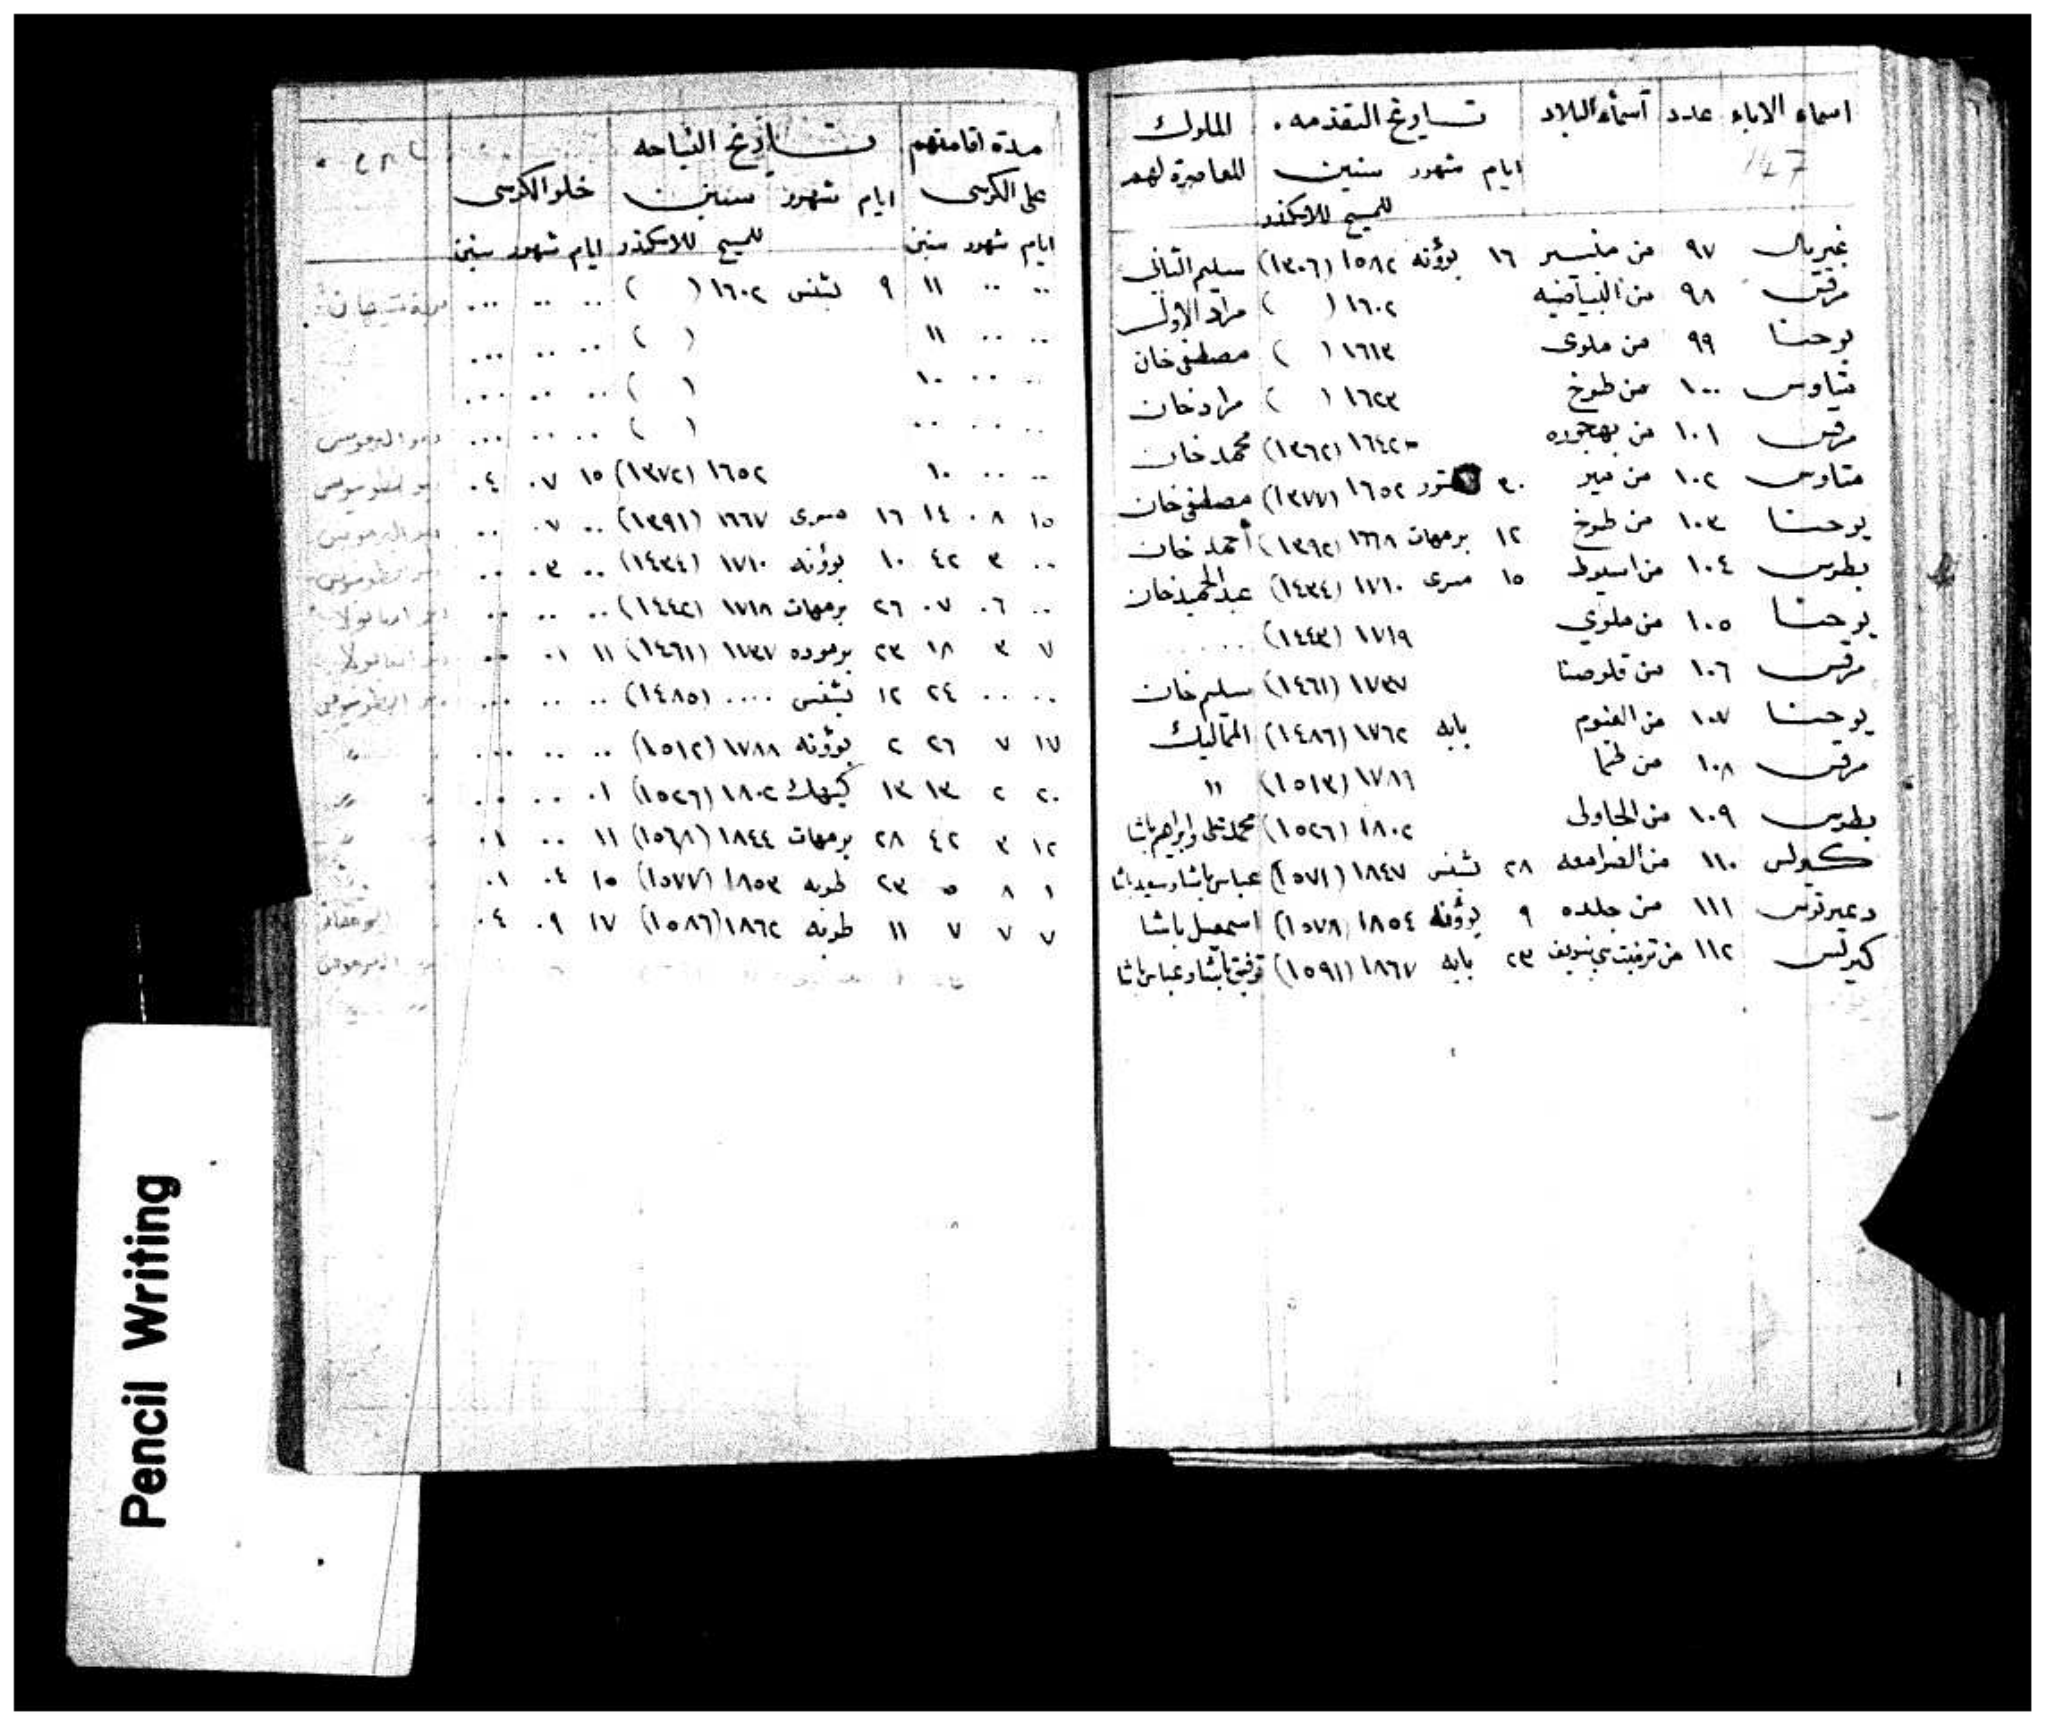 اسماء الاباء عدد أسماء البلاد تاريخ التقدمه الملوك
147 ايام شهور سنين المعاصرة لهم
للمسيح للاسكندر
غبريال ٩٧ من ١٦ بؤونه ١٥٨٢ (١٣٠٦) سليم الثاني
مرقس ٩٨ من البياضيه ١٦٠٢ ( ) مراد الاول
يوحنا ٩٩ من ملوى ١٦١٣ ( ) مصطفى خان
متاوس ١٠٠ من طوخ ١٦٢٣ ( ) مراد خان
مرقس ١٠١ من بهجوره ١٦٤٢ (١٣٦٢) محمد خان
متاوس ١٠٢ من مير ٣٠ ١٦٥٢ (١٣٧٧) مصطفى خان
يوحنا ١٠٣ من طوخ ١٢ برمهات ١٦٦٨ (١٣٩٢) أحمد خان
بطرس ١٠٤ من اسيوط ١٥ مسرى ١٧١٠ (١٤٣٤) عبد الحميد خان
يوحنا ١٠٥ من ملوي ١٧١٩ (١٤٤٣) .....
مرقس ١٠٦ من قلوصنا ١٧٣٧ (١٤٦١) سليم خان
يوحنا ١٠٧ من الفيوم بابه ١٧٦٢ (١٤٨٦) المماليك
مرقس ١٠٨ من طما ١٧٨٩ (١٥١٣) "
بطرس ١٠٩ من الجاولى ١٨٠٢ (١٥٢٦) محمد على وابراهيم باشا
كيرلس ١١٠ من الصوامعه ٢٨ بشنس ١٨٤٧ (١٥٧١) عباس باشا وسعيد باشا
ديمتريوس ١١١ من جلده ٩ بؤونه ١٨٥٤ (١٥٧٨) اسمعيل باشا
كيرلس ١١٢ من تزمنت بني سويف ٢٣ بابه ١٨٦٧ (١٥٩١) توفيق باشا وعباس باشا
مدة اقامتهم تاريخ النياحه
على الكرسى ايام شهور سنين خلو الكرسى
ايام شهور سنين للمسيح للاسكندر ايام شهور سنين
.. .. ١١ ٩ بشنس ١٦٠٢ ( ) .. .. ...
.. .. ١١ ( ) .. .. ...
.. .. ١٠ ( ) .. .. ...
.. .. .. ( ) .. .. ...
.. .. ١٠ ١٦٥٢ (١٣٧٢) ١٥ ٠٧ ٠٤
١٥ ٠٨ ١٤ ١٦ مسرى ١٦٦٧ (١٣٩١) .. ٠٧ ..
.. ٣ ٤٢ ١٠ بؤونه ١٧١٠ (١٤٣٤) .. ٠٣ ..
.. ٠٦ ٠٧ ٢٦ برمهات ١٧١٨ (١٤٤٢) .. .. ..
٧ ٣ ١٨ ٢٣ برموده ١٧٣٧ (١٤٦١) ١١ ٠١ ..
.. .. ٢٤ ١٢ بشنس .... (١٤٨٥) .. .. ...
١٧ ٧ ٢٦ ٢ بؤونه ١٧٨٨ (١٥١٢) .. .. ...
٢٠ ٢ ١٣ ١٣ كيهك ١٨٠٢ (١٥٢٦) ٠١ .. ..
١٢ ٣ ٤٢ ٢٨ برمهات ١٨٤٤ (١٥٦٨) ١١ .. ٠١
١ ٨ ٥ ٢٣ طوبه ١٨٥٣ (١٥٧٧) ١٥ ٠٤ ٠١
٧ ٧ ٧ ١١ طوبه ١٨٦٢ (١٥٨٦) ١٧ ٠٩ ٠٤
Pencil Writing